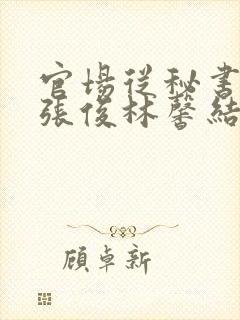 官場從秘書
張俊林馨結
顧卓新